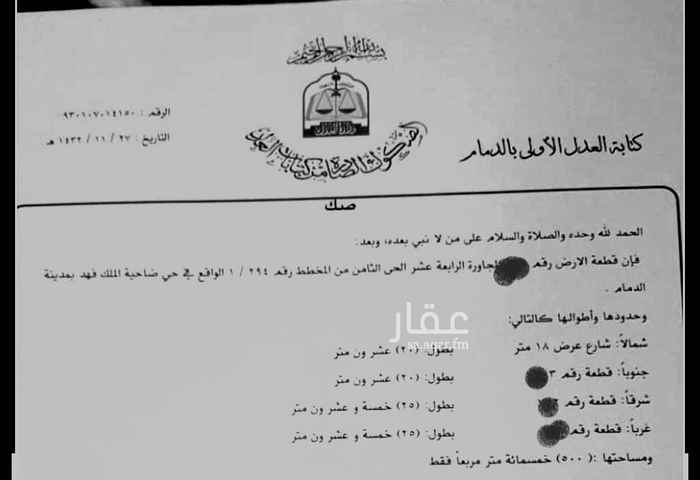 بسم الله الرحمن الرحيم
وزارة العدل
الرقم : ٩٣٠١٠٧٠١٤١٥٠
التاريخ : ٢٧ / ١١ / ١٤٣٢ هـ
كتابة العدل الأولى بالدمام
صك
الحمد لله وحده والصلاة والسلام على من لا نبي بعده، وبعد:
فإن قطعة الارض رقم المجاورة الرابعة عشر الحى الثامن من المخطط رقم ٢٩٤ / ١ الواقع في حي ضاحية الملك فهد بمدينة
الدمام .
وحدودها وأطوالها كالتالي:
شمالاً: شارع عرض ١٨ متر بطول: (٢٠) عشر ون متر
جنوباً: قطعة رقم ٣ بطول: (٢٠) عشر ون متر
شرقاً: قطعة رقم بطول: (٢٥) خمسة و عشر ون متر
غرباً: قطعة رقم بطول: (٢٥) خمسة و عشر ون متر
ومساحتها :(٥٠٠) خمسمائة متر مربعاً فقط
عقار
sa.aqar.fm